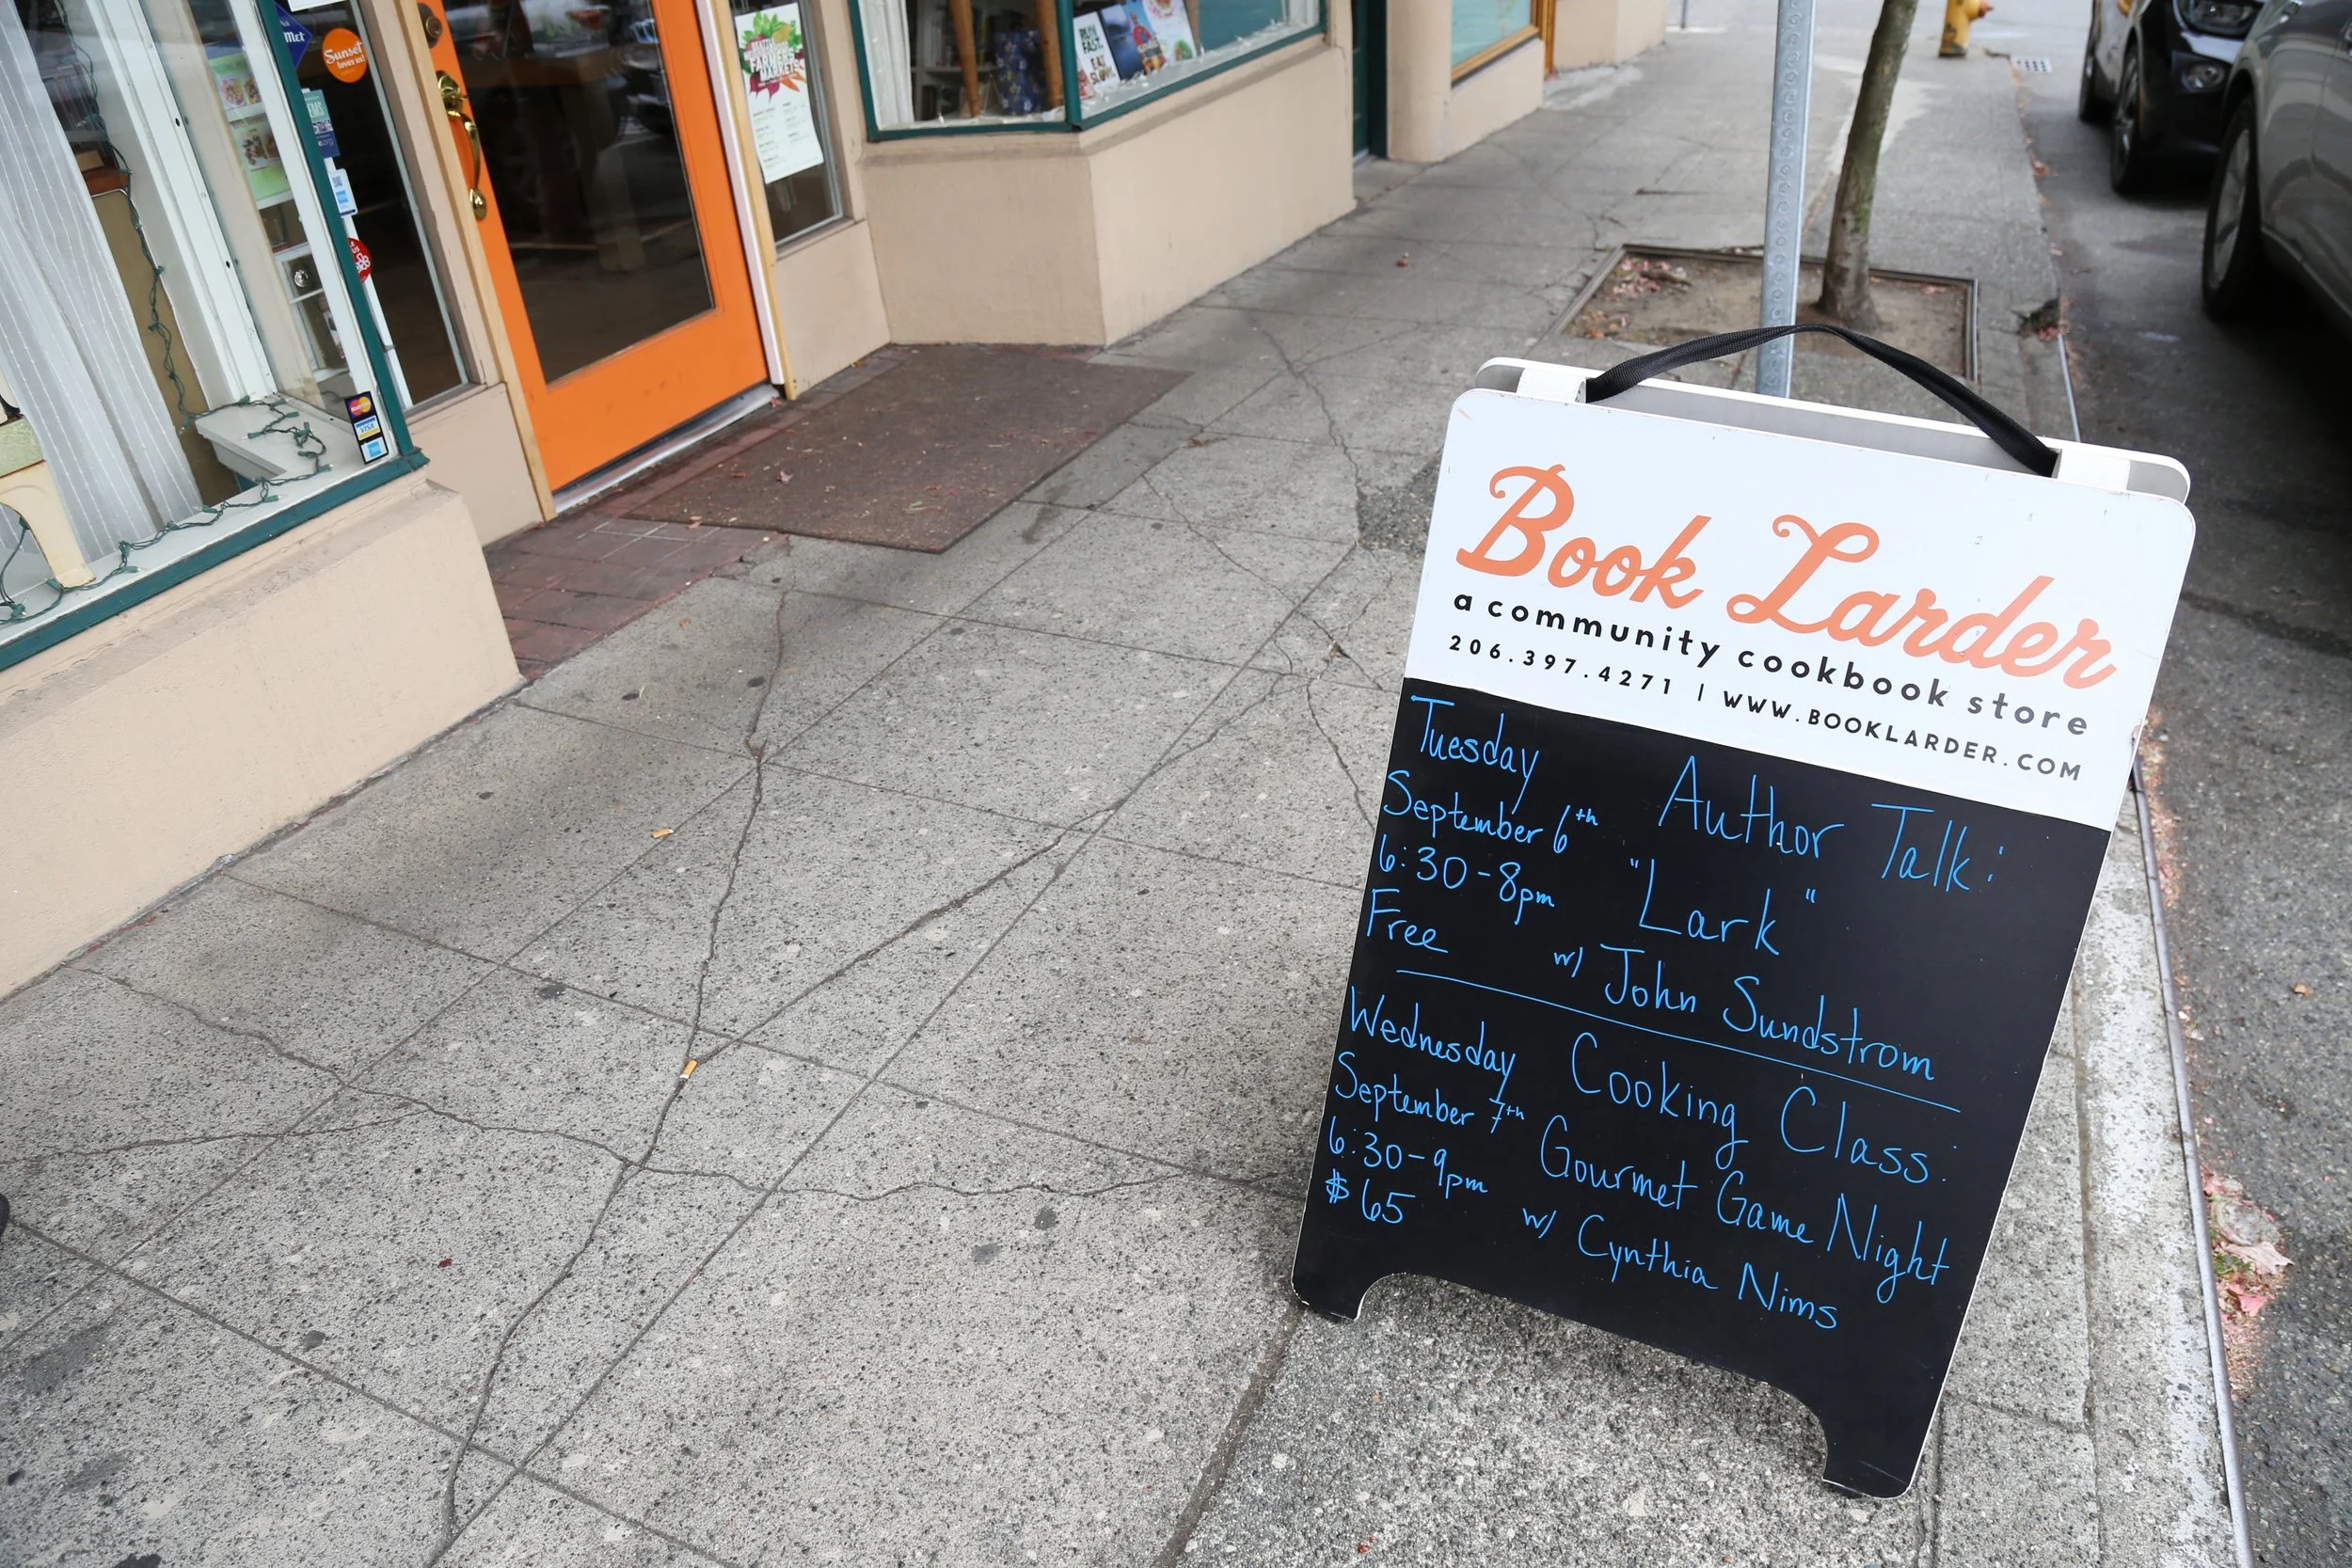 Met
Sunset
loves us!
FARMERS
MARKETS
EAT
VISA
Book Larder
a community cookbook store
206.397.4271 | WWW.BOOKLARDER.COM
Tuesday
September 6th
6:30-8pm
Free
Author Talk:
"Lark"
w/ John Sundstrom
Wednesday
September 7th
6:30-9pm
$65
Cooking Class:
Gourmet Game Night
w/ Cynthia Nims